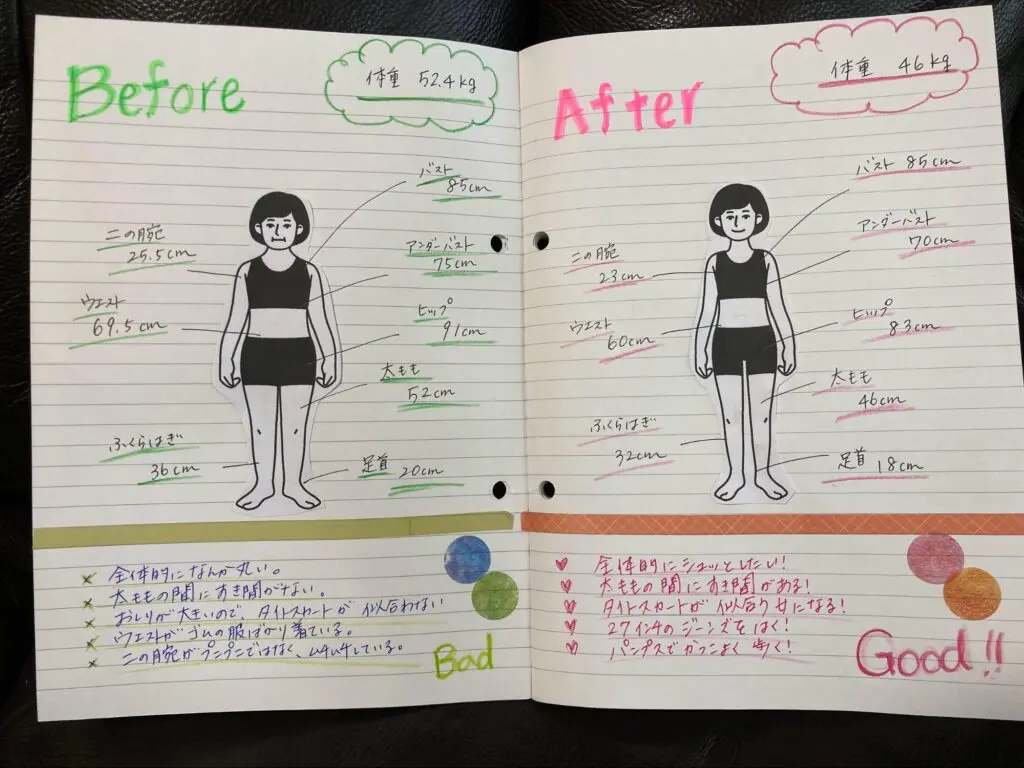 Before
体重 52.4kg
バスト
85cm
二の腕
25.5cm
アンダーバスト
75cm
ウエスト
69.5cm
ヒップ
91cm
太もも
52cm
ふくらはぎ
36cm
足首 20cm
× 全体的になんか丸い。
× 太ももの間にすき間がない。
× おしりが大きいので タイトスカートが 似合わない
× ウエストがゴムの服ばかり着ている。
× 二の腕がプニプニではなく、ムチムチしている。
Bad
After
体重 46kg
バスト 85cm
アンダーバスト
70cm
二の腕
23cm
ヒップ
83cm
ウエスト
60cm
太もも
46cm
ふくらはぎ
32cm
足首 18cm
♥ 全体的にシュッとしたい!
♥ 太ももの間にすき間がある!
♥ タイトスカートが似合う女になる!
♥ 27インチのジーンズをはく!
♥ パンプスでかっこよく歩く!
Good!!